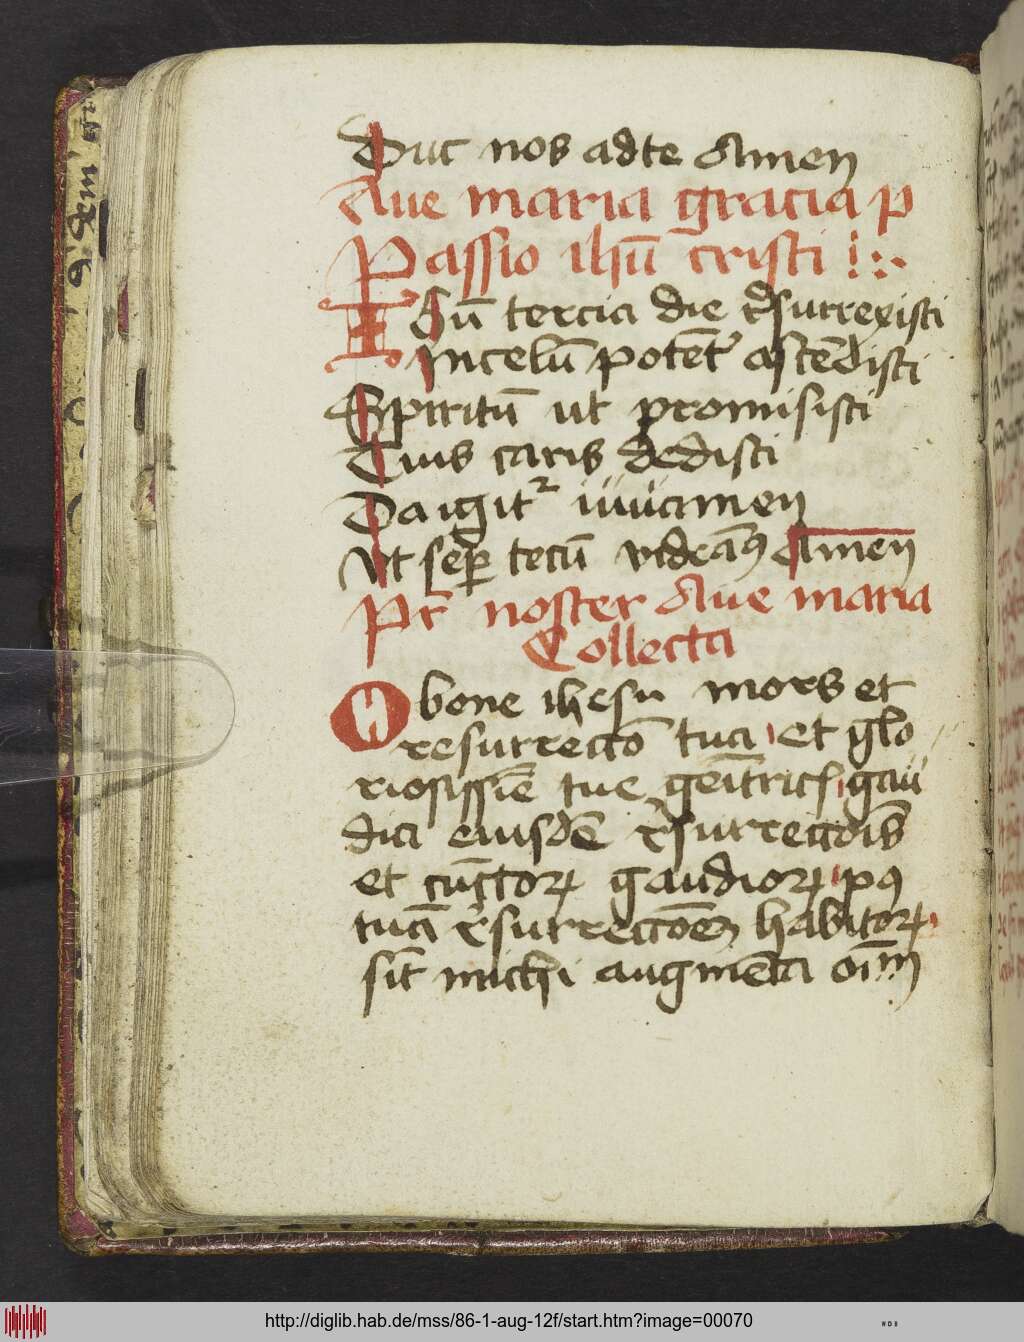 Duc nos ad te Amen
Aue maria gracia p
Passio ihū cristi
Ihū tercia die rsurrexisti
In celū potēt ascēdisti
Spiritū ut promisisti
Tuis caris dedisti
Da igit iuuamen
Ut sēper tecū videamꝰ Amen
Pr noster Aue maria
Collecta
O bone ihesu mors et
resurreccō tua et glo
riosissīe tue geītricis gau
dia eiusdē rsurreccōis
et cūctoꝝ gaudioꝝ pꝰ
tuā rsurreccōem habitoꝝ
sīt michi augmēta oīm
http://diglib.hab.de/mss/86-1-aug-12f/start.htm?image=00070